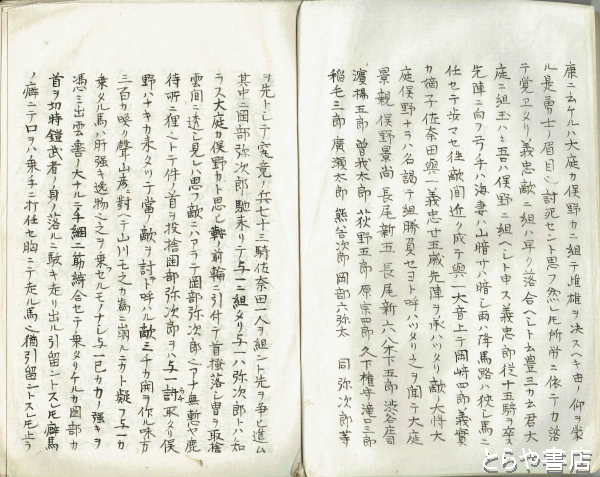 康ニ云ケルハ大庭カ俣野カニ組テ雌雄ヲ決スヘキ由ノ仰ヲ蒙
ル是勇士ノ眉目ニ討死セント思フ然レ圧所労ニ依テカ落
テ覚ヱタリ義忠敵ニ組ハ早ク落合ヘシト云豊三カ云君大
庭ニ組玉ハヽ吾ハ俣野ニ組ヘシト申ス義忠郎従十五騎ヲ卒ス
先陣ニ向フ弓手ハ海妻ハ山暗サハ暗シ雨ハ降馬路ハ狭シ馬ニ
任セテ歩マセ往敵間近ク成テ與一大音上テ岡崎四郎義實
カ嫡子佐奈田與一義忠廿五歳先陣ヲ承ハツタリ敵大将大
庭俣野ナラハ名謁テ組勝負セヨト呼ハツタリ之ヲ聞テ大庭
景親俣野景尚長尾新五長尾新六八木下五郎渋谷庄司
濱楊五郎曽我太郎荻野五郎原宗四郎久下権守滝口三郎
稲毛三郎廣瀬太郎熊谷次郎岡部六弥太同弥次郎等
ヲ先トシテ究竟ノ兵七十三騎佐奈田一人ヲ組ント先ヲ争ヒ進ム
其中ニ岡部弥次郎馳来リテ与一ニ組タリ与一ハ弥次郎トハ知
ラス大庭カ俣野カト思ヒ鞍ノ前輪ニ引付テ首掻落シ曽ヲ取捨
雲間ニ透シ見レハ思フ敵ニハアラテ岡部弥次郎ニアナ無慙ヤ鹿
待所ノ狸ニトテ件ノ首ヲ投捨岡部弥次郎ヲハ与一討取タリ俣
野ハナキカ木タツテ當ノ敵ヲ討ト呼ハル敵ミチカ関ヲ作ル味方
三百カ喚ク聲山彦ニ對ヘテ山川モ之カ為ニ崩ルニカト疑フ与一カ
乗タル馬ハ肝強キ逸物ニ之ヲ乗セルモナシ与一已カ力ノ強キヲ
憑ミ出雲轡ノ大ナルニ手細二筋綯合セテ乗タリケルカ岡部カ
首ヲ切時鎧武者ノ身ノ落ルニ駭キ走リ出ル引留ントスレ圧癖馬
ノ癖ニテロヲハ乗手ニ打任セ胸ニテ走ル馬ニ猶引留ントスレ圧止ラ
とらや書店